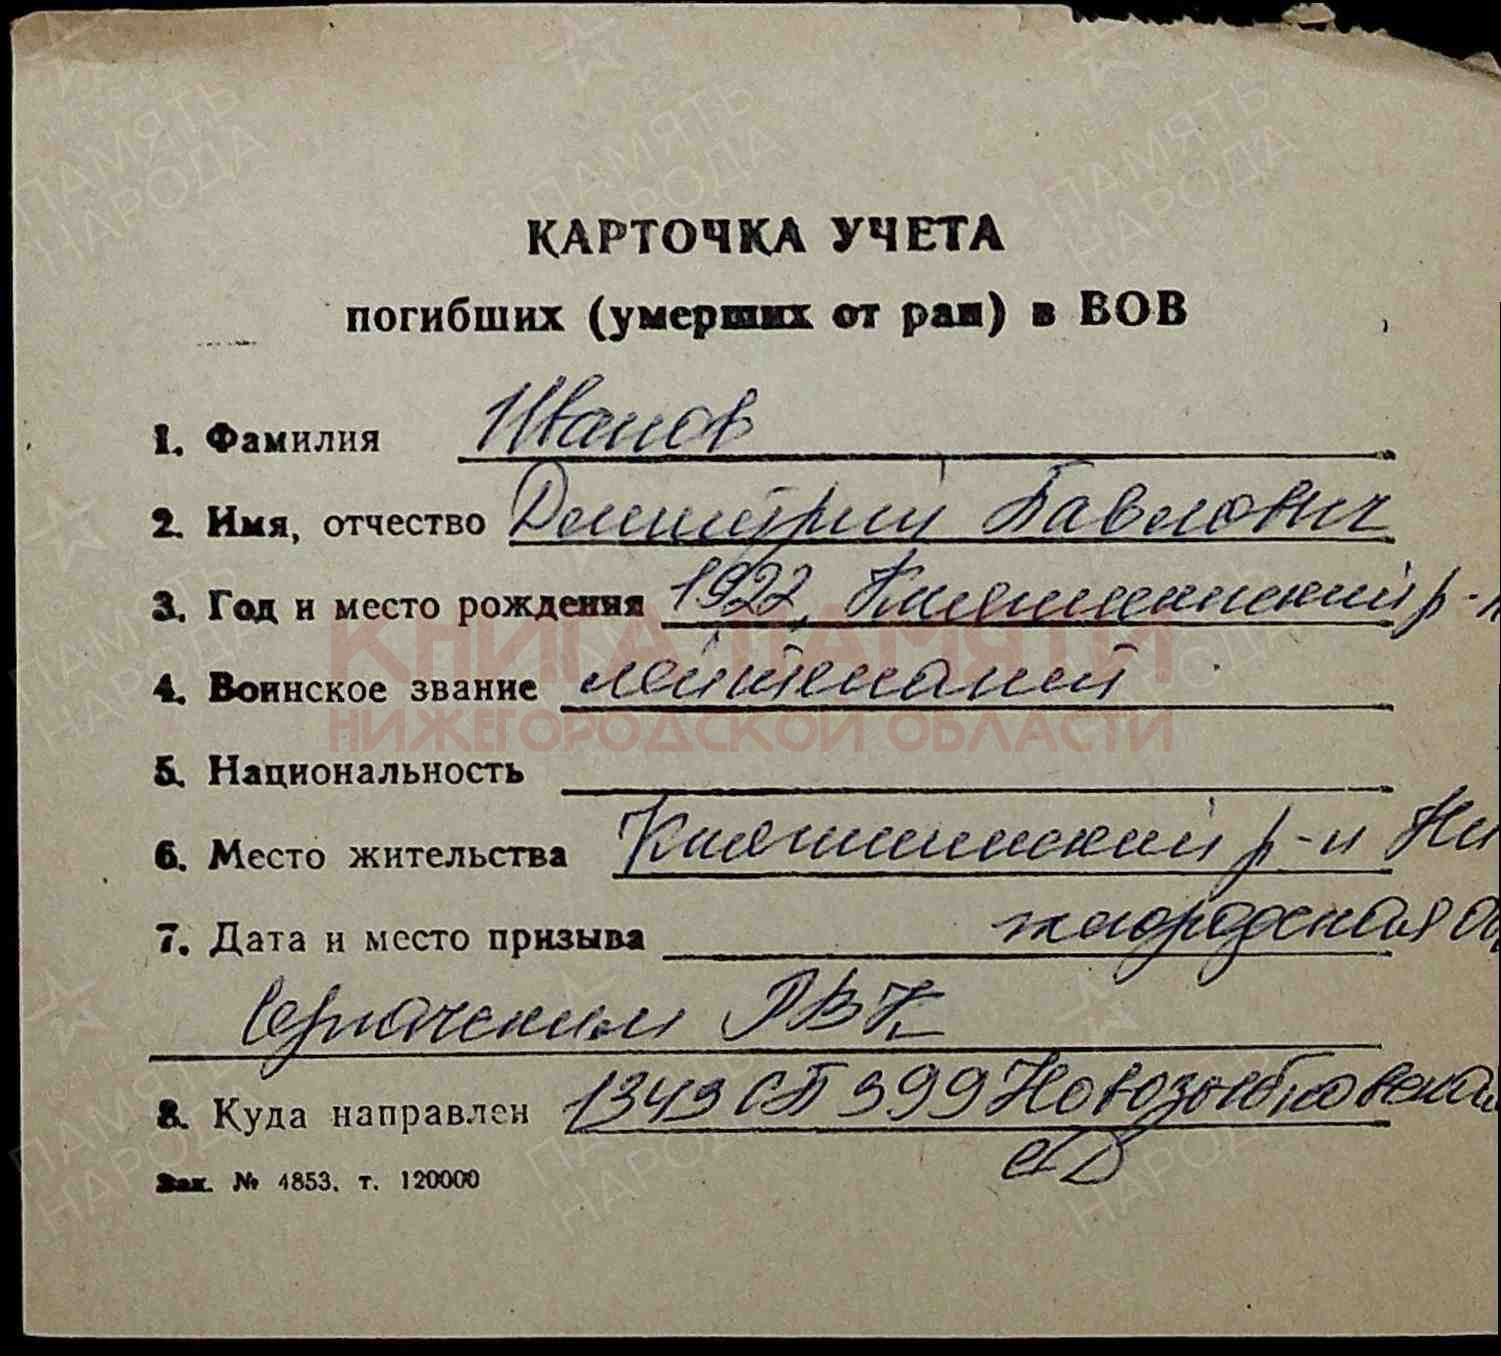 КАРТОЧКА УЧЕТА
погибших (умерших от ран) в ВОВ
1. Фамилия Иванов
2. Имя, отчество Дмитрий Павлович
3. Год и место рождения 1922, Княгининский р-н
4. Воинское звание лейтенант
5. Национальность
6. Место жительства Княгининский р-н Ни
7. Дата и место призыва жегородская об
Сергачским РВК
8. Куда направлен 1343 СП 399 Новозыбковская
СД
Зак. № 4853. т. 120000
КНИГА ПАМЯТИ
НИЖЕГОРОДСКОЙ ОБЛАСТИ
ПАМЯТЬ
НАРОДА